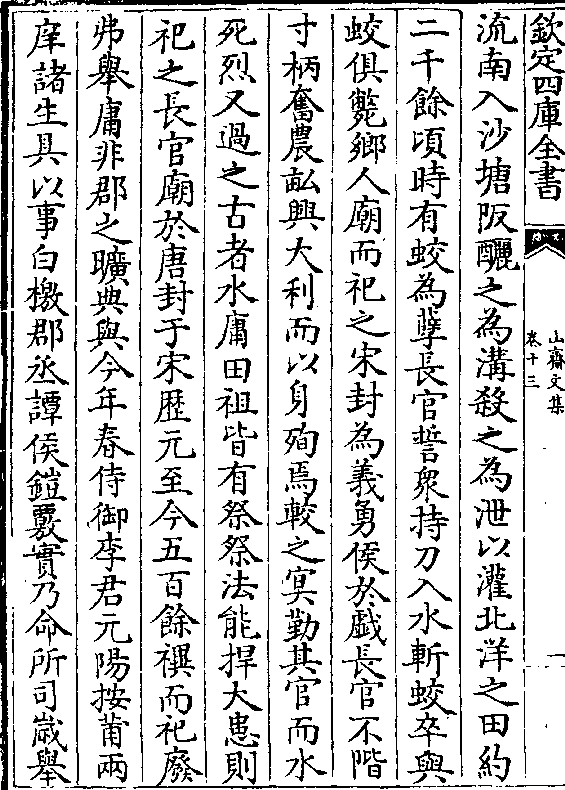 欽定四庫全書
山齋文集
卷十三
一
流南入沙塘阪釃之為溝殺之為泄以灌北洋之田約
二千餘頃時有蛟為孽長官誓衆持刀入水斬蛟卒與
蛟俱斃鄉人廟而祀之宋封為義勇侯於戯長官不階
寸柄奮農畝興大利而以身殉焉較之㝠勤其官而水
死烈又過之古者水庸田祖皆有祭祭法能捍大患則
祀之長官廟於唐封于宋歴元至今五百餘禩而祀廢
弗舉庸非郡之曠典與今年春侍御李君元陽按莆兩
庠諸生具以事白檄郡丞譚侯鎧覈實乃命所司嵗舉